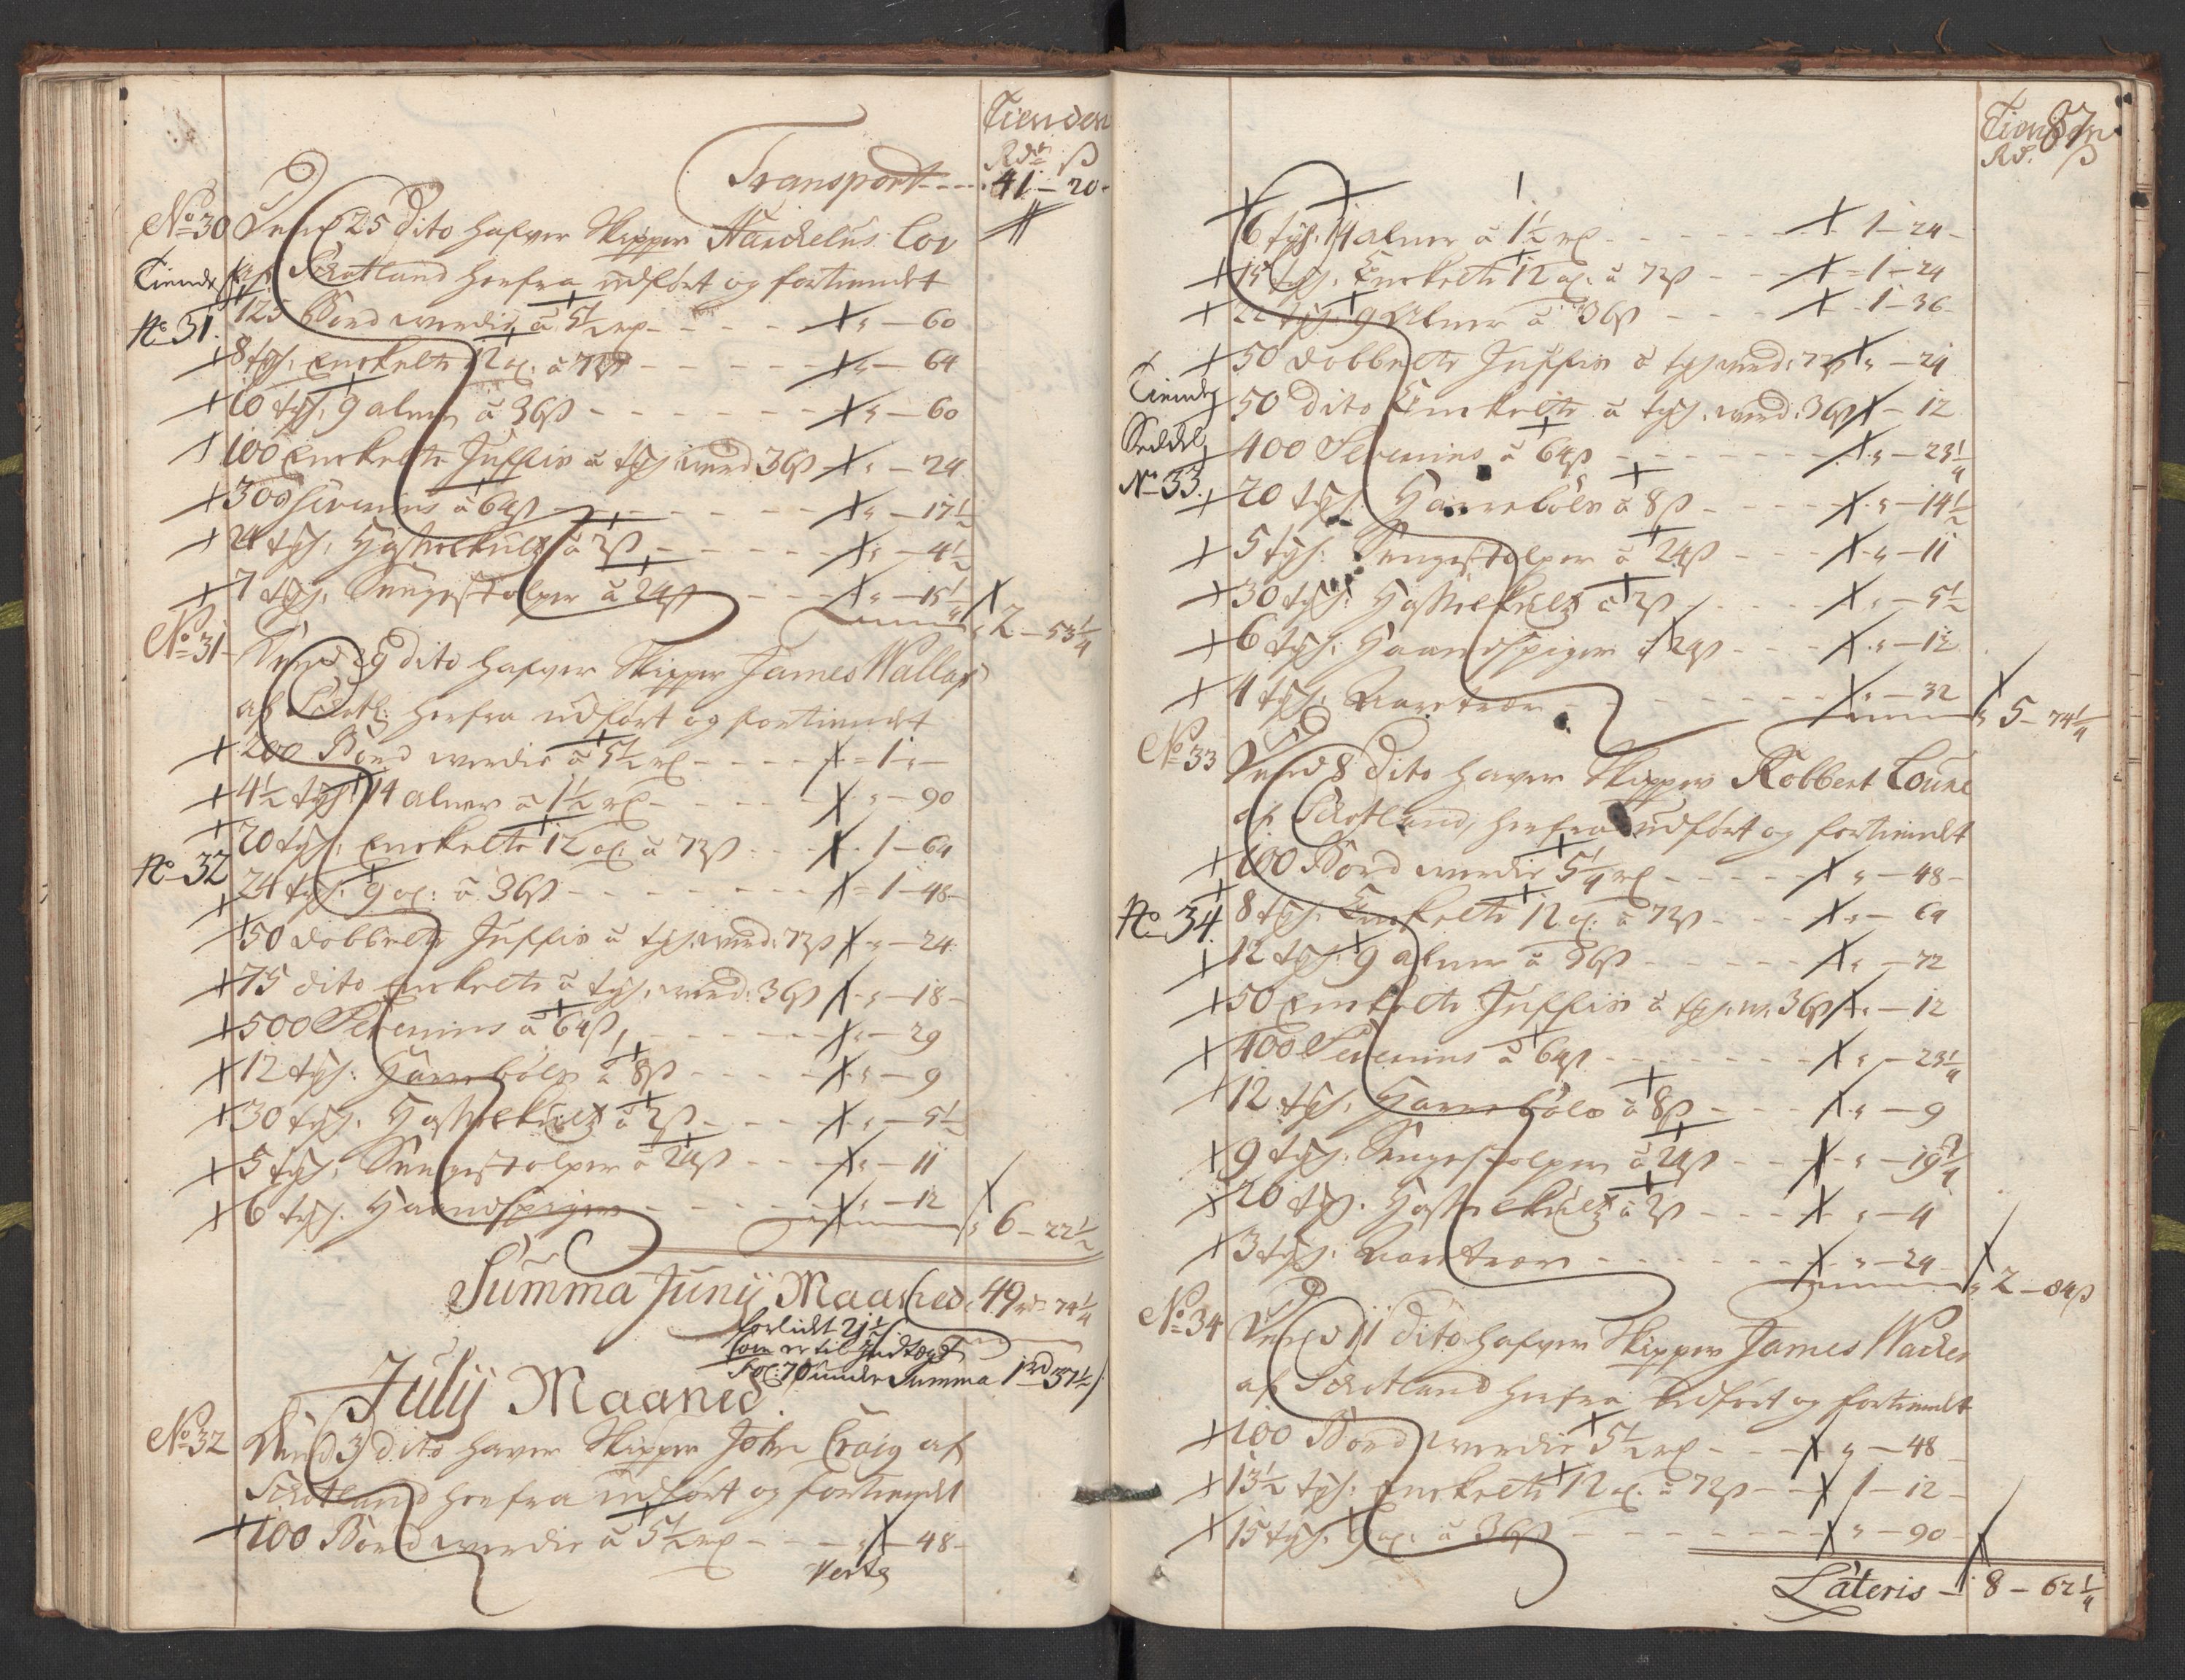 Tienden
Rdr ß
Transport - - - 41 - 20 -
No 30 Dend 25 dito hafver Skipper Haickelus Cov
Tiende
af Skotland herfra udført og fortiendet
No 31.
125 Bord werdie à 5½ rx - - - - " - 60
8 tyl: Enckelte 12 al: à 72ß - - - - " - 64
10 tyl: 9 alner à 36ß - - - - " - 60
100 Enckelte Juffer à tyl: werd 36ß - " - 24
300 Sevenins à 64ß - - - - " - 17½
24 tyl: à 2ß - - - - " - 4½
7 tyl: Sengestolper à 24ß - - - " - 15¼
2 - 53¼
No 31 Dend 29 dito hafver Skipper James Wallas
af Skotl: herfra udført og fortiendet
200 Bord werdie à 5½ rx - - - - 1 " -
4½ tyl: 14 alner à 1½ rx - - - - " - 90
20 tyl: Enckelte 12 al: à 72ß - - - 1 - 64
No 32
24 tyl: 9 al: à 36ß - - - - 1 - 48 -
50 dobbelte Juffer à tyl: werd: 72ß " - 24
75 dito Enckelte à tyl: werd: 36ß - " - 18 -
500 Sevenins à 64ß - - - - " - 29
12 tyl: Harrebòlr à 8ß - - - - " - 9
30 tyl: à 2ß - - - - " - 5½
5 tyl: Sengestolper à 24ß - - - " - 11
6 tyl: Haandspiger - - - - " - 12
6 - 22½
Summa Junij Maaned 49 rd 74¼
forlidt 21½ ß
som er til Indtægt
Fol: 70 under Summa 1 rd 37½ ß
Julij Maaned
No 32 Dend 3 dito haver Skipper John Craig af
Skotland herfra udført og fortiendet
100 Bord werdie à 5½ rx - - - " - 48 -
Verte
87
Tienden
Rd. ß
6 tyl: 14 alner à 1½ rx - - - - 1 - 24 -
15 tyl: Enckelte 12 al: à 72ß - - - 1 - 24
22 tyl: 9 Alner à 36ß - - - 1 - 36 -
50 dobbelte Juffer à tyl: werd: 72ß " - 24
Tiende
50 dito Enckelte à tyl: werd: 36ß - 12
Seddel
400 Sevenins à 64ß - - - - " - 23¼
No 33.
20 tyl: Harrebòlr à 8ß - - - - " - 14½
5 tyl: Sengestolper à 24ß - - - " - 11
30 tyl: à 2ß - - - - " - 5½
6 tyl: Haandspiger à 24ß - - - " - 12
4 tyl: - - - - " - 32
5 - 74¼
No 33 Dend 8 dito haver Skipper Robbert Coune
af Skotland, herfra udført og fortiendet
100 Bord werdie 5¼ rx - - - - " - 48 -
No 34.
8 tyl: Enckelte 12 al: à 72ß - - - " - 64
12 tyl: 9 alner à 36ß - - - - " - 72
50 Enckelte Juffer à tyl: w: 36ß " - 12
400 Sevenins à 64ß - - - - " - 23¼
12 tyl: Harrebòlr à 8ß - - - " - 9
9 tyl: Sengestolper à 24ß - - - " - 19¾
20 tyl: à 2ß - - - - " - 4
3 tyl: - - - - " - 24
2 - 84ß
No 34 Dend 11 dito hafver Skipper James Wacker
af Skotland herfra udført og fortiendet
100 Bord werdie 5½ rx - - - " - 48
13½ tyl: Enckelte 12 al: à 72ß - - 1 - 12 -
15 tyl: 9 al: à 36ß - - - - " - 90 -
Lateris - 8 - 62¼